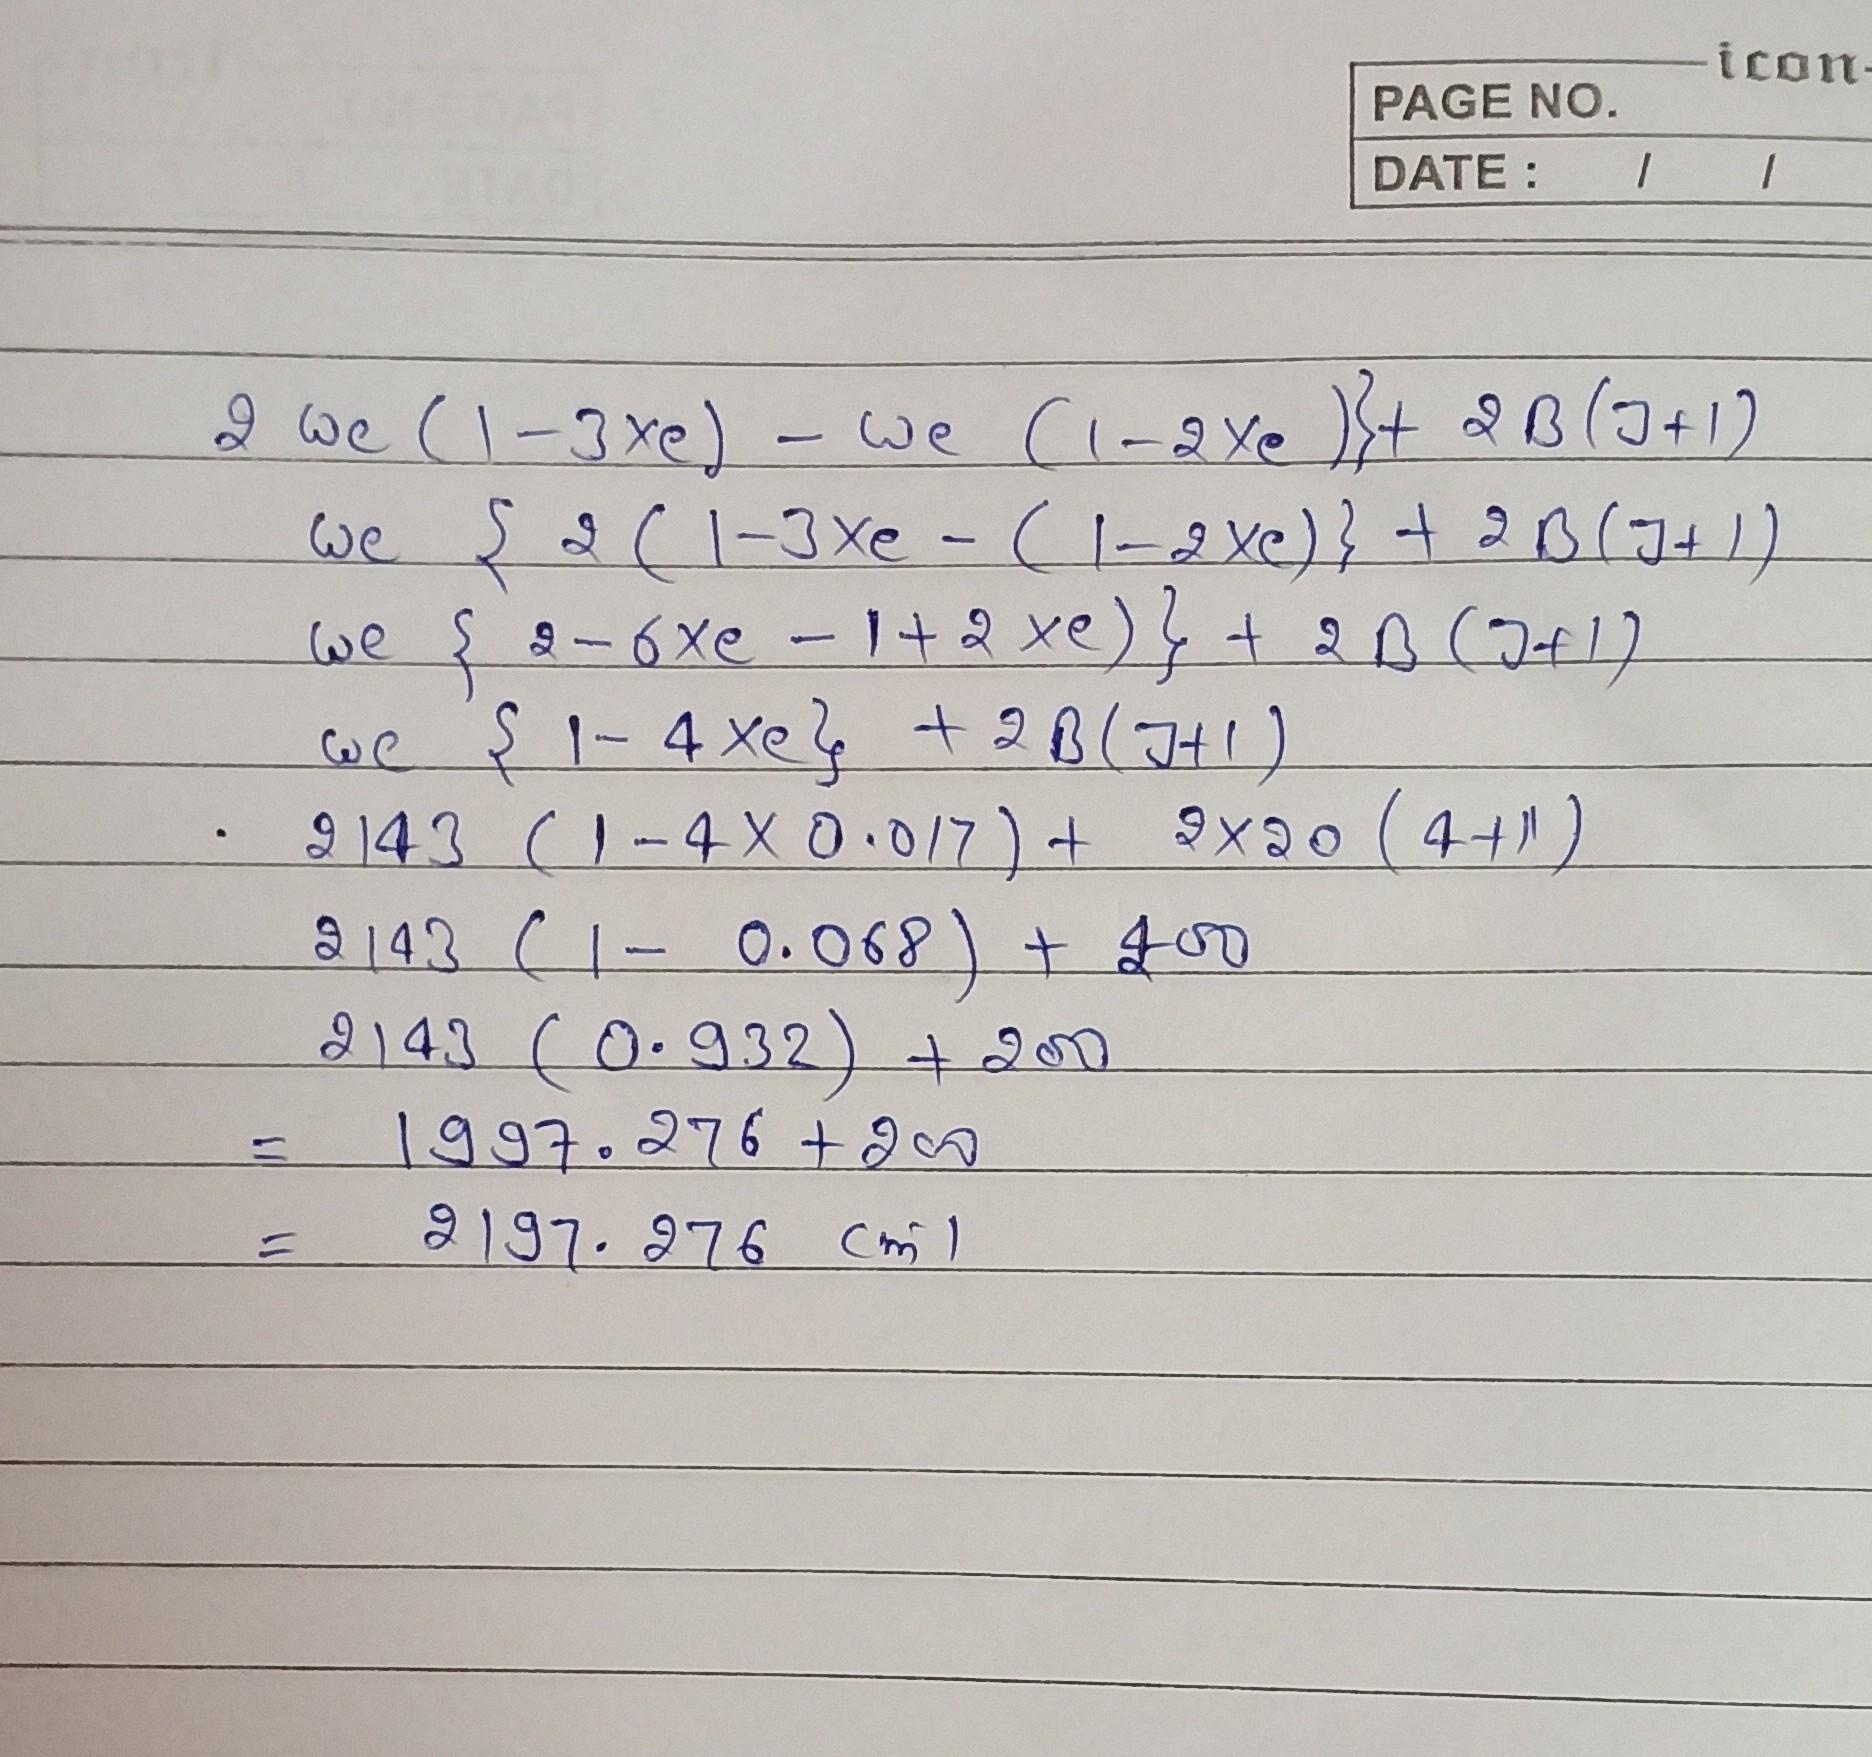 icon-
PAGE NO.
DATE : / /
2 we (1-3xe) - we (1-2xe)}+ 2B(J+1)
we { 2 ( 1-3xe - ( 1-2xe)} + 2B(J+1)
we { 2-6xe - 1+2xe)} + 2B(J+1)
we { 1- 4xe} + 2B(J+1)
2143 ( 1-4 X 0.017) + 2x20 ( 4+1)
2143 ( 1- 0.068) + 200
2143 ( 0.932) + 200
= 1997.276 + 200
= 2197.276 cm-1